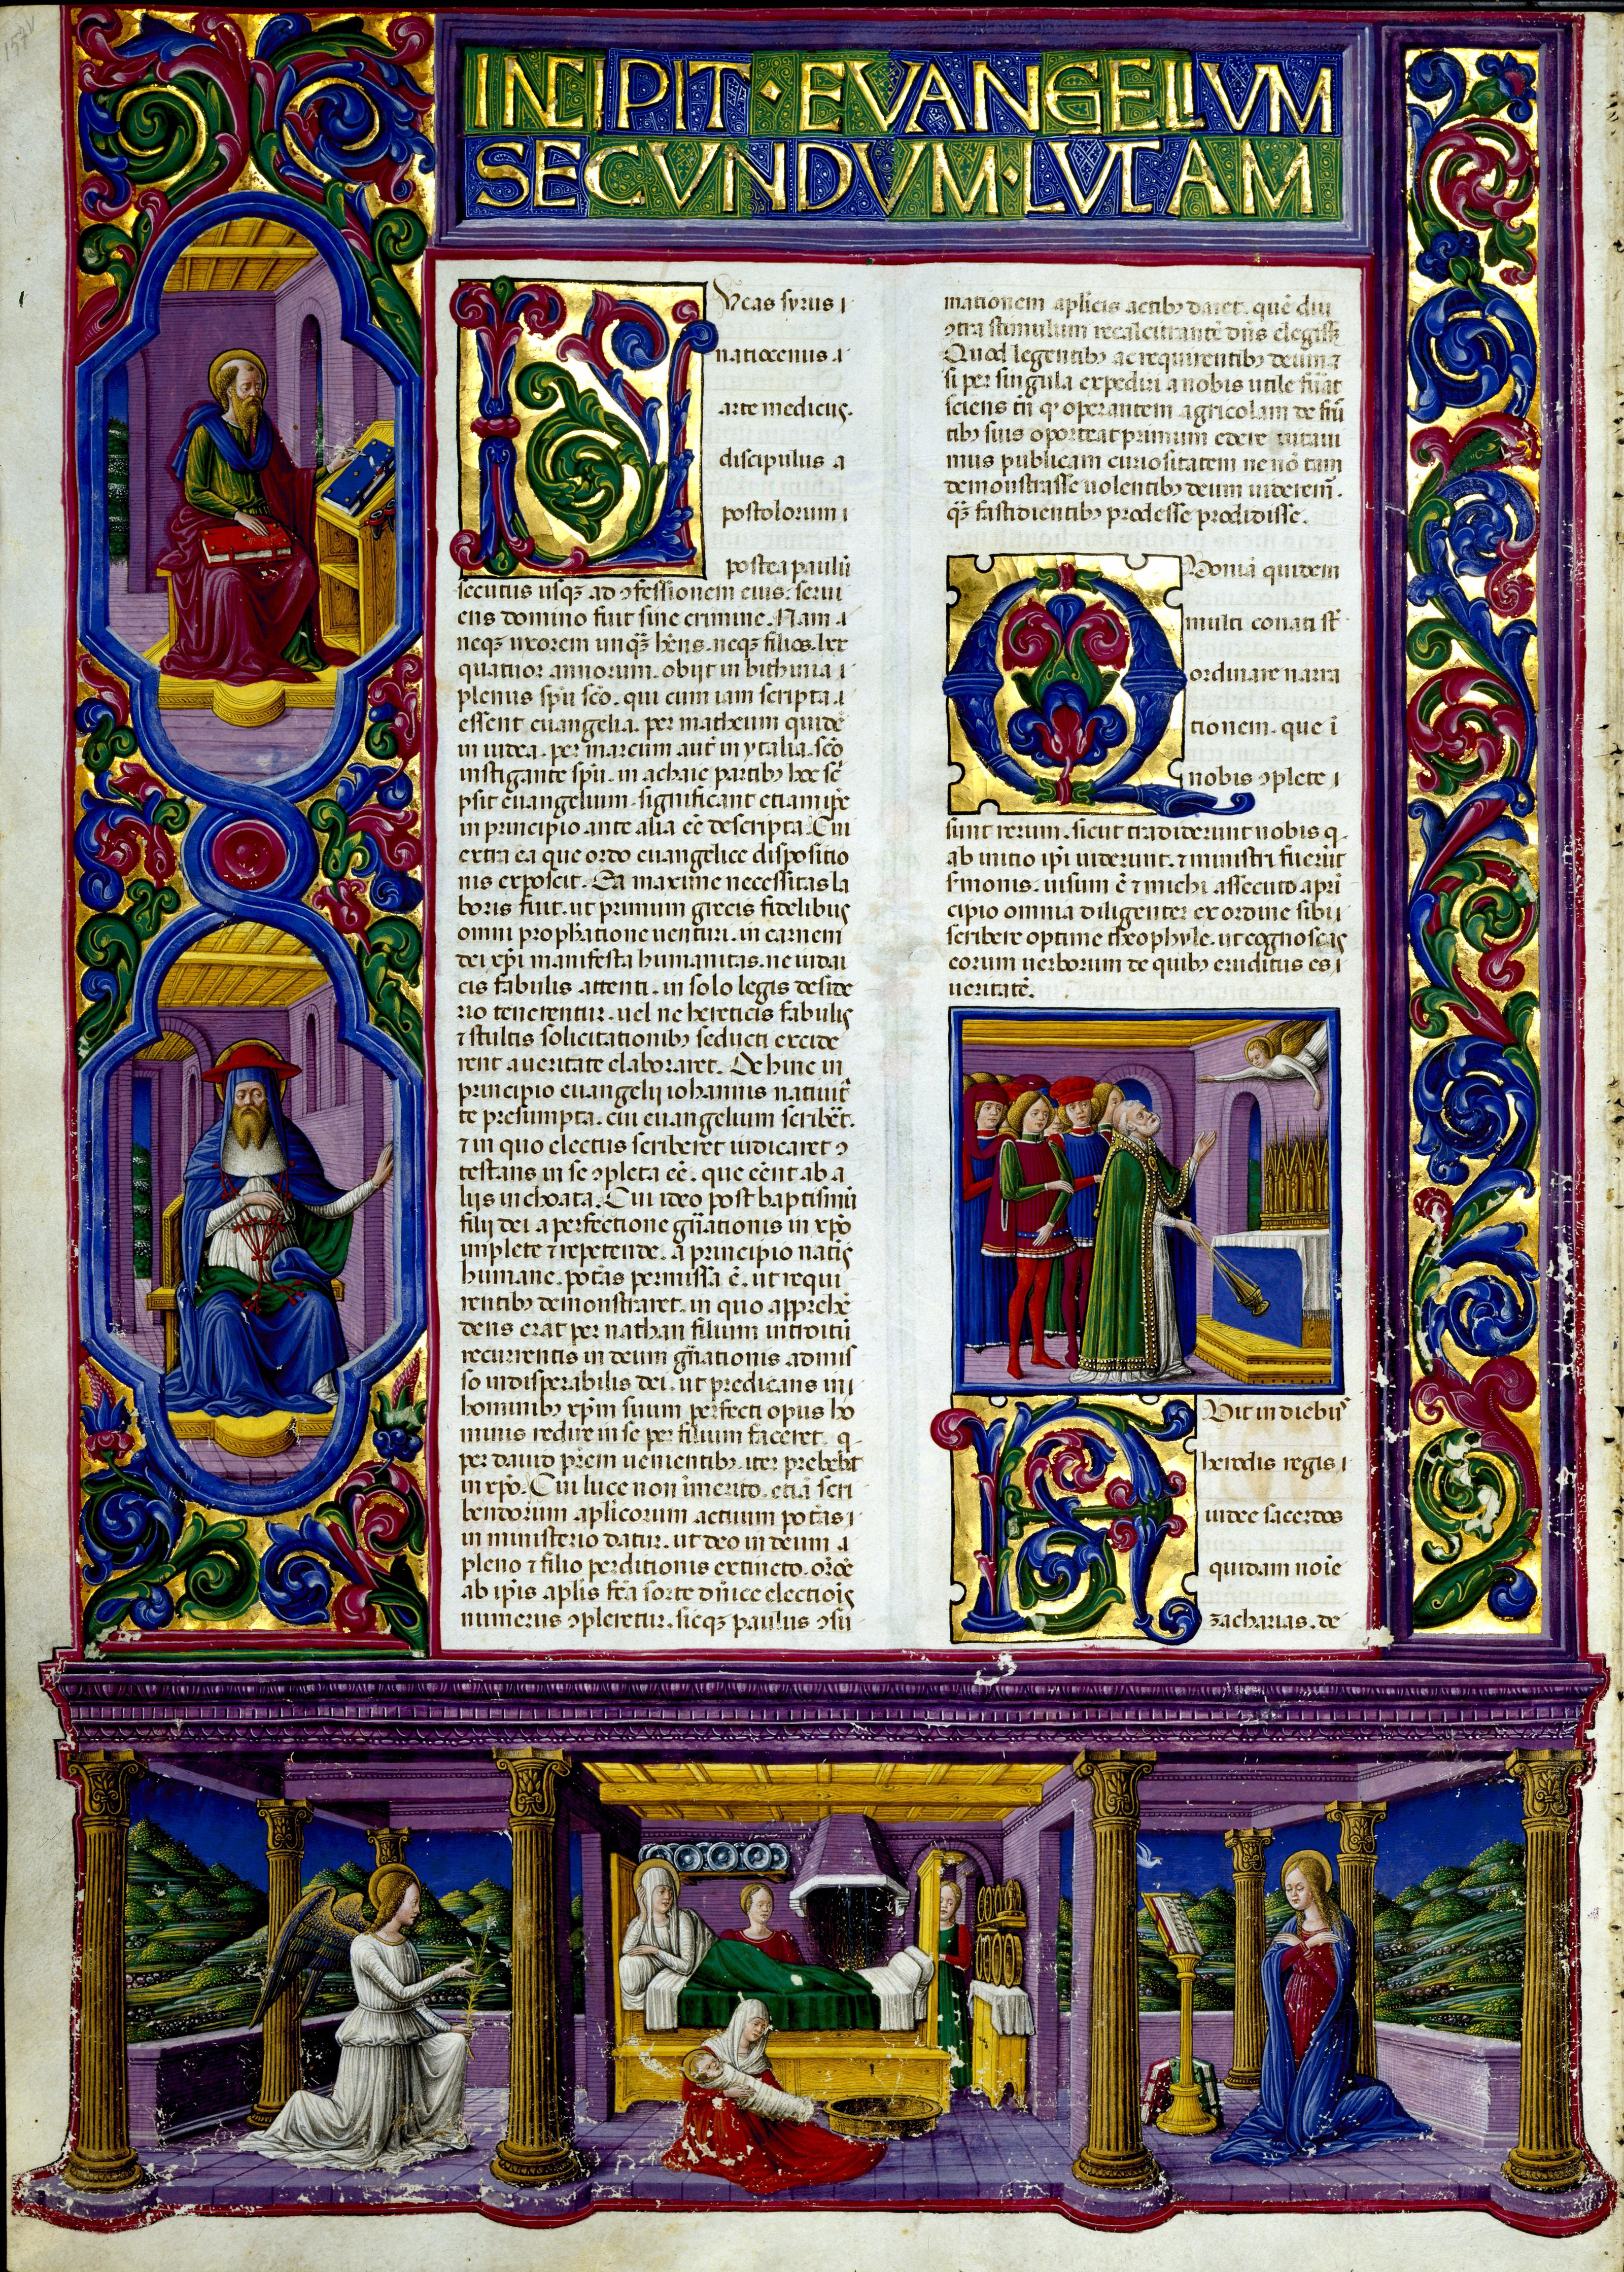 157v
INCIPIT · EVANGELIVM
SECVNDVM · LVCAM
Lucas syrus ı
natiocenus ı
arte medicus.
discipulus a
postolorum ı
postea paulū
secutus usqꝫ ad ↄfessionem eius. serui
ens domino fuit sine crimine. Nam ı
neqꝫ uxorem unqꝫ hn̄s. neqꝫ filios. lxx
quatuor annorum. obijt in bithinia ı
plenus spū scō. qui cum iam scripta ı
essent euangelia. per matheum quidē
in iudea. per marcum aut̄ in ytalia. scō
instigante spū. in achaie partibꝫ hoc sc̄
psit euangelium. significans etiam ip̄e
in principio ante alia eē descripta. Cui
extra ea que ordo euangelice dispositio
nis exposcit. Ea maxime necessitas la
boris fuit. ut primum grecis fidelibus
omni prophetatione uenturi. in carnem
dei xp̄i manifesta humanitas. ne iudai
cis fabulis attenti. in solo legis deside
rio tenerentur. uel ne hereticis fabulis
⁊ stultis solicitationibꝫ seducti excide
rent a ueritate elaboraret. Dehinc in
principio euangelij iohannis natiuit̄
te presumpta. cui euangelium scriberet.
⁊ in quo electus scriberet iudicaret ↄ
testans in se ↄpleta eē. que eēnt ab a
lijs inchoata. Cui ideo post baptismū
filij dei a perfectione gn̄ationis in xp̄o
implete ⁊ repetende. a principio natiuitatis
humane. potās permissa ē. ut requi
rentibꝫ demonstraret. in quo apprehē
dens erat per nathan filium introitū
recurrentis in deum gn̄ationis admis
so indisperabilis dei. ut predicans in ı
hominibꝫ xp̄m suum perfecti opus ho
minis redire in se per filium faceret. q
per dauid prēm uenientibꝫ. iter prebebat
in xp̄o. Cui luce non īmerito. etiā scri
bendorum aplicorum actuum potās ı
in ministerio datur. ut deo in deum a
pleno ⁊ filio perditionis extincto. oroē
ab ip̄is aplis fc̄a sorte dn̄ice electiōis
numerus ↄpleretur. sicqꝫ paulus ↄsū
mationem aplicis actibꝫ daret. quē diu
ↄtra stimulum recalcitrantē dn̄s elegissꝫ
Quod legentibꝫ ac requirentibꝫ deum ⁊
si per singula expediri a nobis utile fuat
sciens tn̄ qꝫ operantem agricolam de fru
tibꝫ suis oporteat primum edere uitaui
mus publicam curiositatem ne nō tam
demonstrasse uolentibꝫ deum uideremr.
qꝫ fastidientibꝫ prodesse prodidisse.
Quoniā quidem
multi conati st̄
ordinare narra
tionem. que ī
nobis ↄplete ı
sunt rerum. sicut tradiderunt nobis q
ab initio ip̄i uiderunt. ⁊ ministri fuerūt
s̄monis. uisum ē ⁊ michi assecuto a prī
cipio omnia diligenter ex ordine tibi
scribere optime theophyle. ut cognoscas
eorum uerborum de quibꝫ eruditus es ı
ueritatē.
Fuit in diebus
herodis regis ı
iudee sacerdos
quidam noīe
zacharias. de